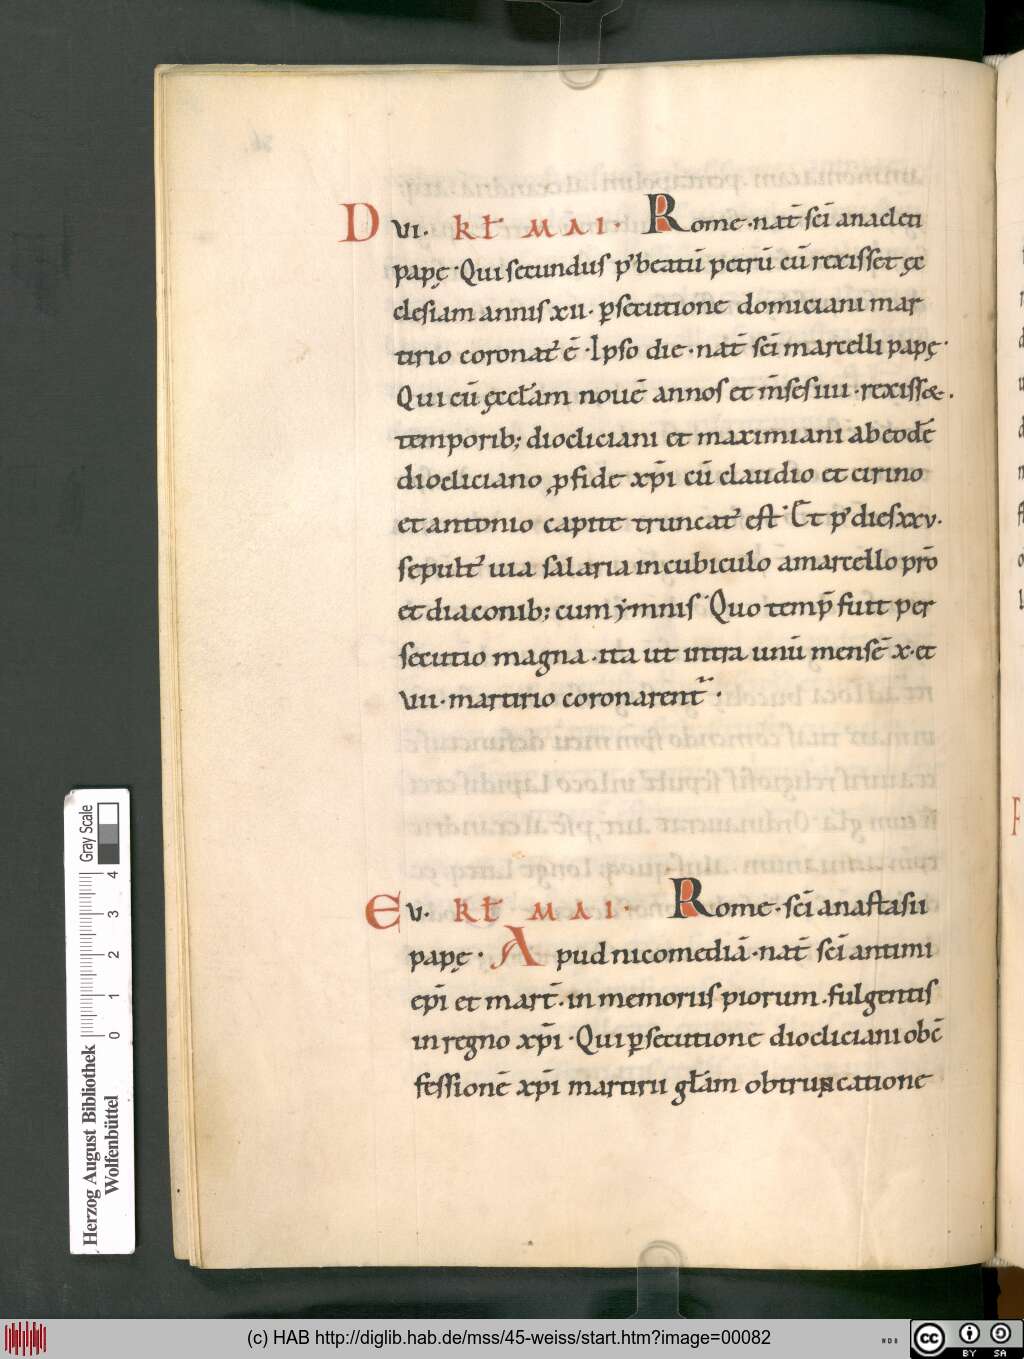 D VI. KL̅ MAI. Rome. nat̅ sc̅i anacleti
papę. Qui secundus p' beatū petrū cū rexisset ęc
clesiam annis xii. ꝑsecutione domiciani mar
tirio coronat' ē. Ipso die. nat̅ sc̅i marcelli papę.
Qui cū ęccl̅am nouē annos et m̅ses iiii. rexiss&.
temporib; diocliciani et maximiani ab eodē
diocliciano ꝓ fide xp̅i cū claudio et cirino
et antonio capite truncat' est. Et p' dies xxv.
sepult' uia salaria in cubiculo a marcello pr̅o
et diaconib; cum ẏmnis. Quo temp̅ fuit per
secutio magna. ita ut intra unū mensē x. et
vii. martirio coronarent'.
E V. KL̅ MAI. Rome. sc̅i anastasii
papę. Apud nicomediā. nat̅ sc̅i antimi
ep̅i et mart̅. in memoriis piorum. fulgentis
in regno xp̅i. Qui ꝑsecutione diocliciani ob cō
fessionē xp̅i martirii gl̅am obtruncatione
Herzog August Bibliothek
Wolfenbüttel
0 1 2 3 4
Gray Scale
(c) HAB http://diglib.hab.de/mss/45-weiss/start.htm?image=00082
cc BY SA